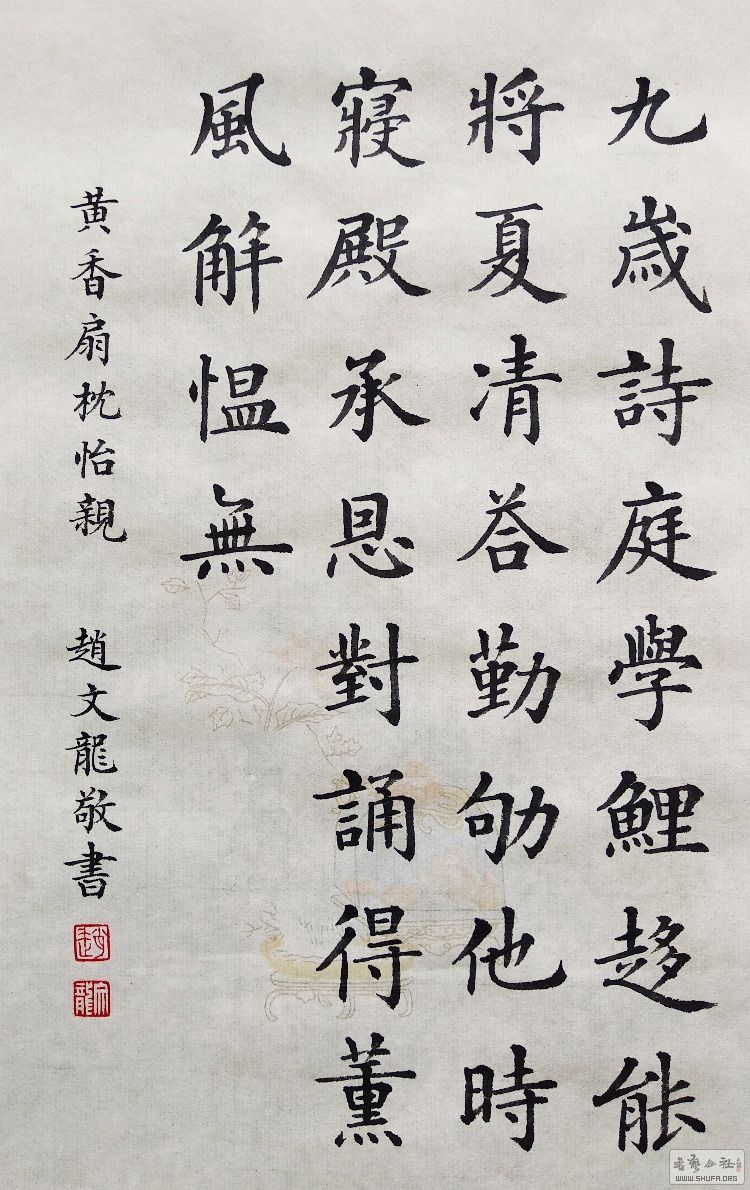 九歲詩庭學鯉趍能
將夏凊荅勤劬他時
寢殿承恩對誦得薰
風解愠無
黄香扇枕怡親
趙文龍敬書
WWW.SHUFA.ORG